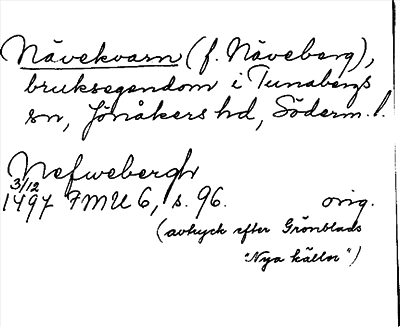 Nävekvarn (f. Näveberg),
bruksegendom i Tunabergs
sn, Jönåkers hd, Söderm. l.
Nefwebergh
3/12
1497 FMU 6, s. 96. orig.
(avtryck efter Grönblads
"Nya källor")